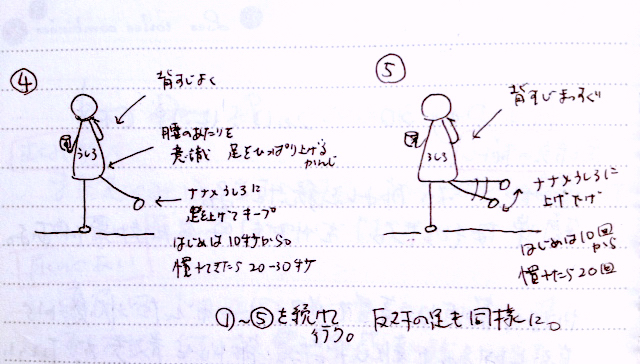 ④
背すじよく
腰のあたりを
意識 足をひっぱり上げる
かんじ
うしろ
ナナメうしろに
足を上げてキープ
はじめは10秒から。
慣れてきたら20-30秒
⑤
背すじまっすぐ
うしろ
ナナメうしろに
上げ下げ
はじめは10回
から
慣れたら20回
①~⑤を続けて
行う。
反対の足も同様に。